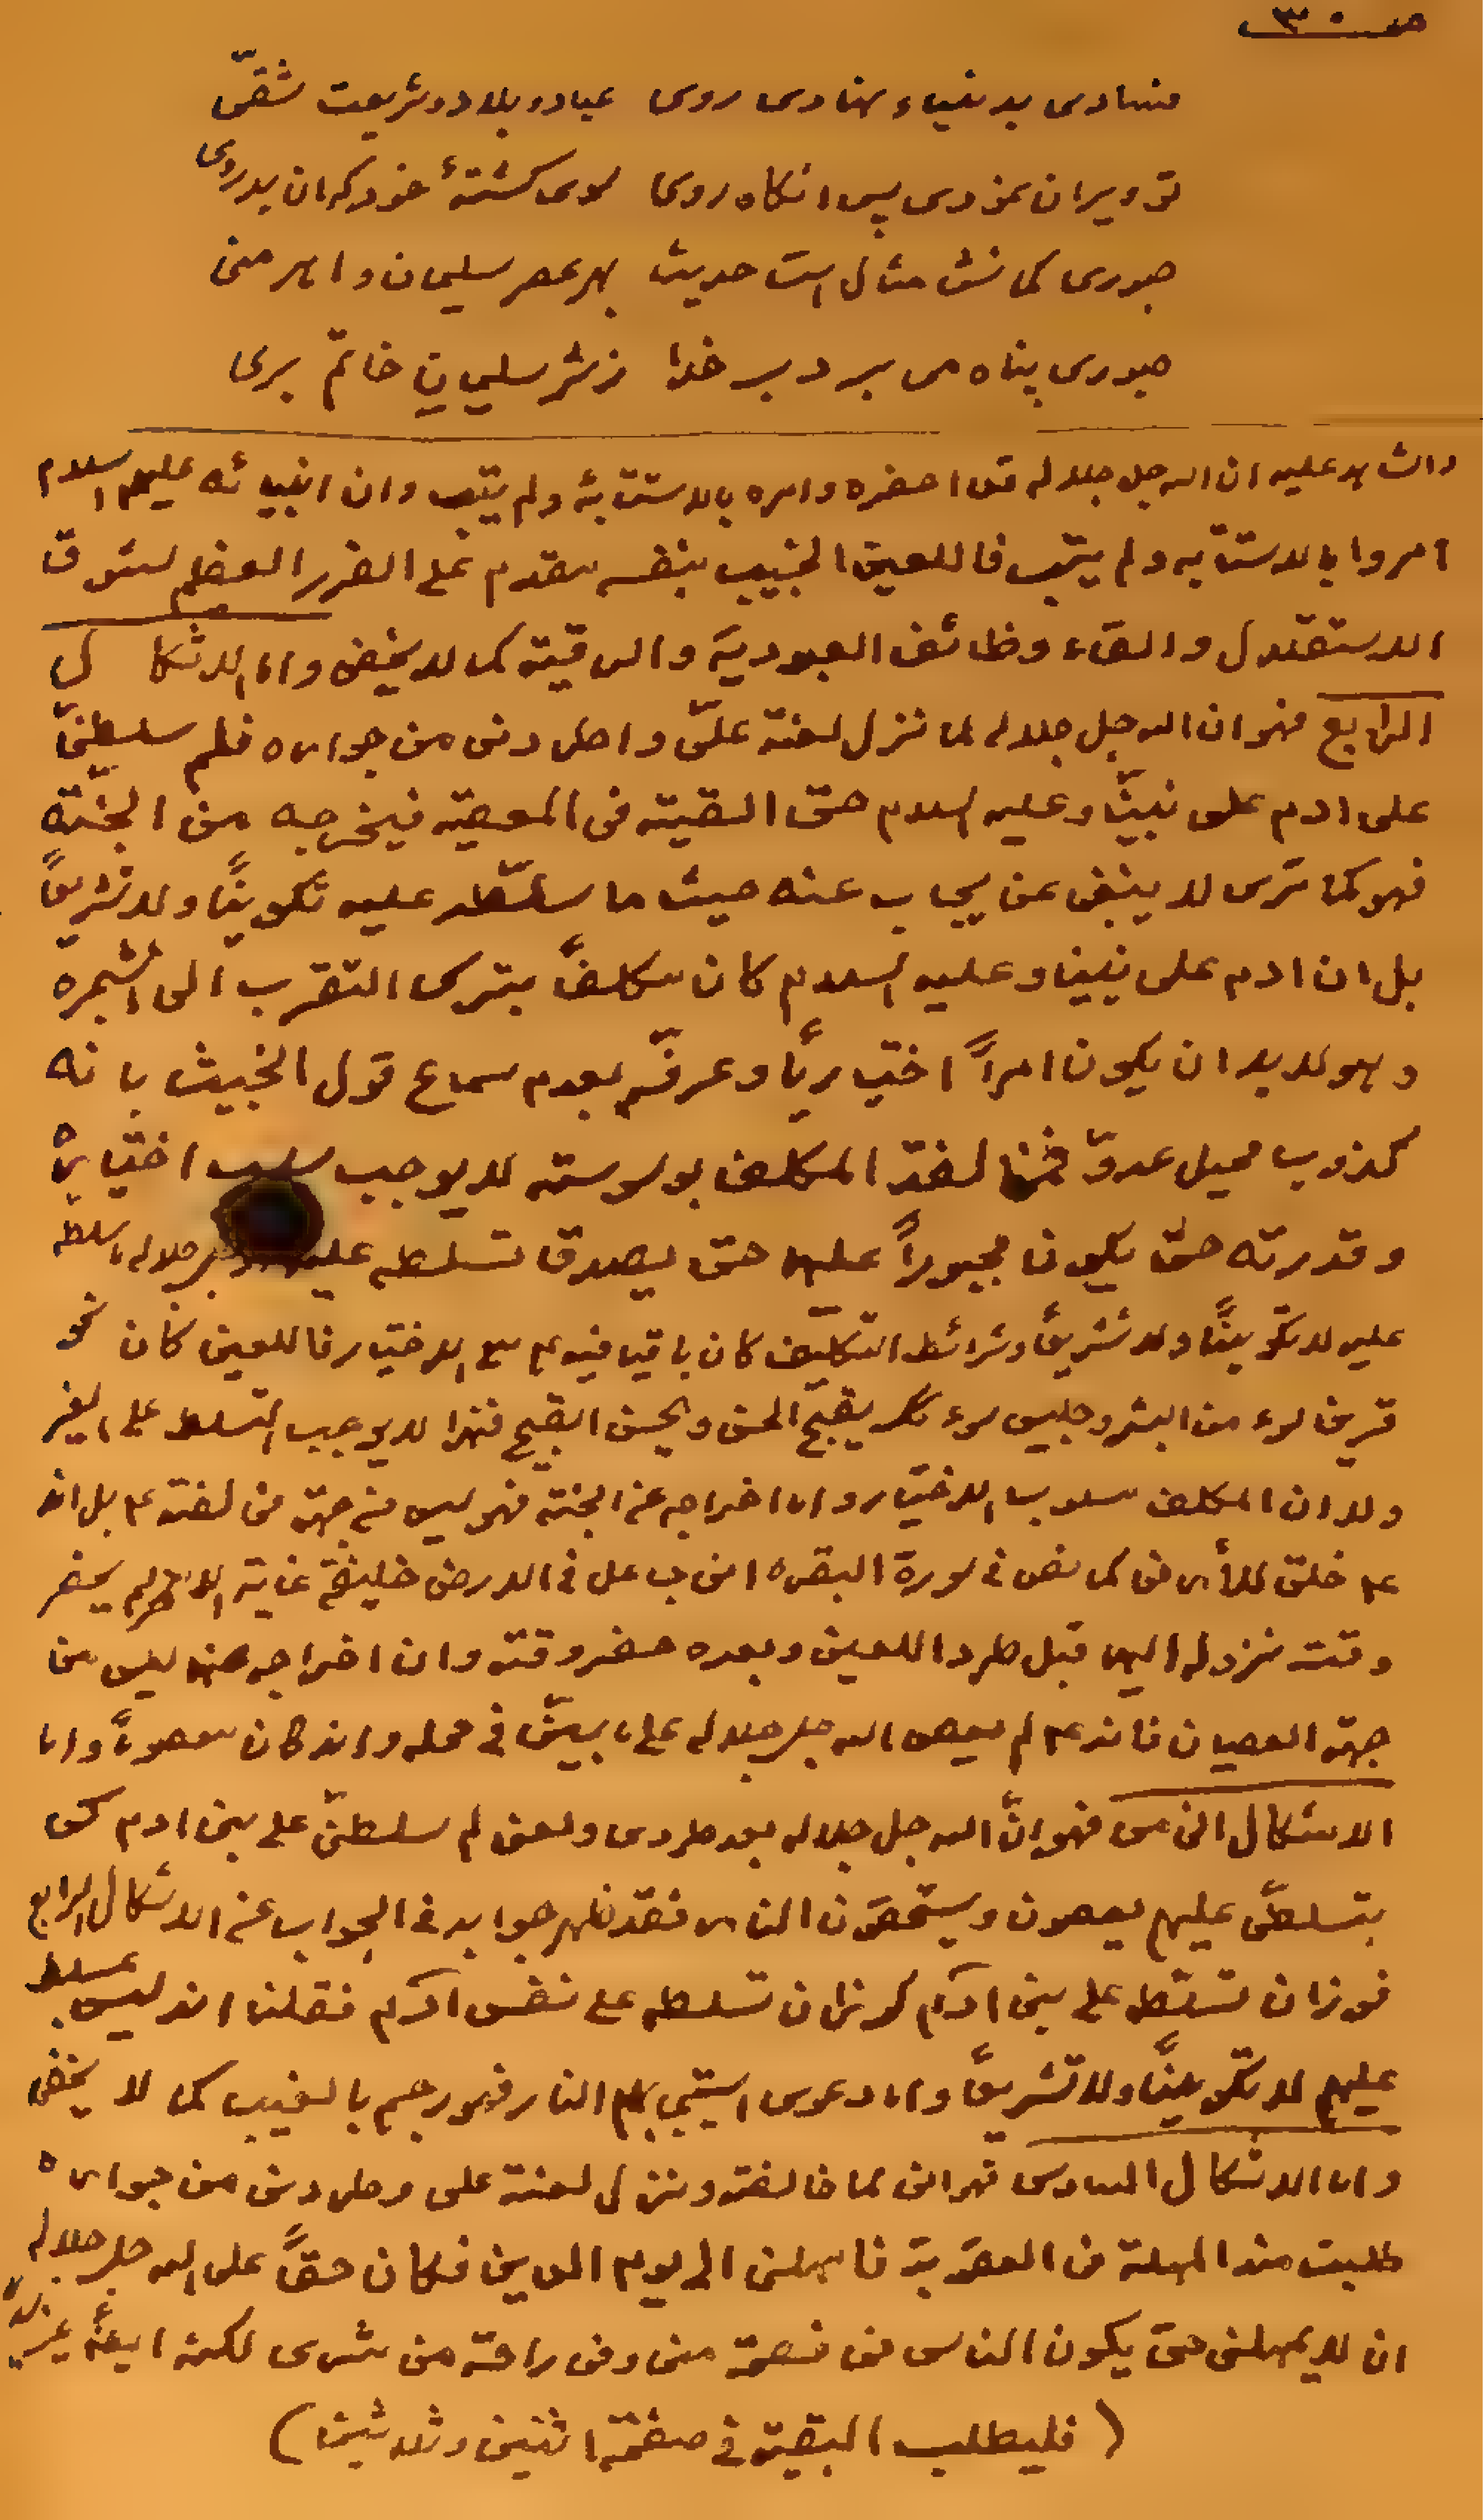 صـ ٣٠
فسادی بدنیا نهادی روی عباد و بلاد و شریعت شقیّ
تو ویران نمودی پس انگاه روی لوی کشتهٔ خود که ان بدروی
صبوری کمانش مثال است حدیث بهر عصر سلیمان و اهرمنی
صبوری پناه می برد بر خدا ز شر سلیمان خاتم بری
والشاهد علیه ان الله جل جلاله قد احضره وامره بالاستتابة ولم یتب وان انبیائه علیهم السلام
امروا بالاستتابه ولم یتب فاللعین الخبیث بنفسه مقدم علی الضرر العظیم لشوق
الاستقلال والقاء وظائف العبودیة والرقیة کما لا یخفی واما الاشکال
الرابع فهو ان الله جل جلاله لما نزل لعنة علیّ واطردنی من جواره فلم سلطنیّ
علی ادم علی نبینّا وعلیه السلام حتی القیته فی المعصیة فیخرجه من الجنّة
فهو کما تری لا ینبغی عن یجاب عنه حیث ما سلّطه علیه تکوینًا ولا تشریعًا
بل ان ادم علی نبینا وعلیه السلام کان مکلفًا بترک التقرب الی الشجرة
وهو لا بد ان یکون امرًا اختیاریًا وعرفّه بعدم سماع قول الخبیث بانه
کذوب محیل عدوّ فمخالفة المکلف بوسوسته لا یوجب سلب اختیاره
وقدرته حتی یکون مجبورًا علیها حتی یصدق تسلطه علیه جل جلاله ما سلطه
علیه لا تکوینًا ولا تشریعًا وشرائط التکلیف کان باقیا فیه ع مع الاختیار فاللعین کان نحو
قرین سوء من البشر وجلیس سوء یقبح الحسن ویحسن القبیح فهذا لا یوجب التسلط علی الغیر
ولا ان المکلف مسلوب الاختیار واما اخراجه عن الجنة فهو لیس من جهة مخالفته ع بل انه
ع خلق للأرض کما نص فی سورة البقره انی جاعل فی الارض خلیفة غایة الامر لم یحضر
وقت نزوله الیها قبل طرد اللعین وبعده حضر وقته وان اخراجه منها لیس من
جهة العصیان فانه ع لم یعص الله جل جلاله علی ما بینّا فی محله وانه کان معصومًا واما
الاشکال الخامس فهو انّ الله جل جلاله بعد طردی ولعن لم سلطنیّ علی بنی ادم کی
بتسلطیّ علیهم یعصون ویستحقون النار فقد ظهر جوابه فی الجواب عن الاشکال الرابع
فوزان تسلّطه علی بنی ادم کوزان تسلطه علی نفس ادم فقلنا انه لیس بمسلط
علیهم لا تکوینًا ولا تشریعًا واما دعوی استیجابهم النار فهو رجم بالغیب کما لا یخفی
واما الاشکال السادس فهو انی لما خالفته ونزل لعنة علی وطردنی من جواره
طلبت منه المهلة من العقوبة فامهلنی الی یوم الدین فکان حقًّا علی الله جل جلاله
ان لا یمهلنی حتی یکون الناس فی نعمة منی وفی راحة من شری لکنه ایضًا
(فلیطلب البقیة فی صفحة اثنین وثلاثین)